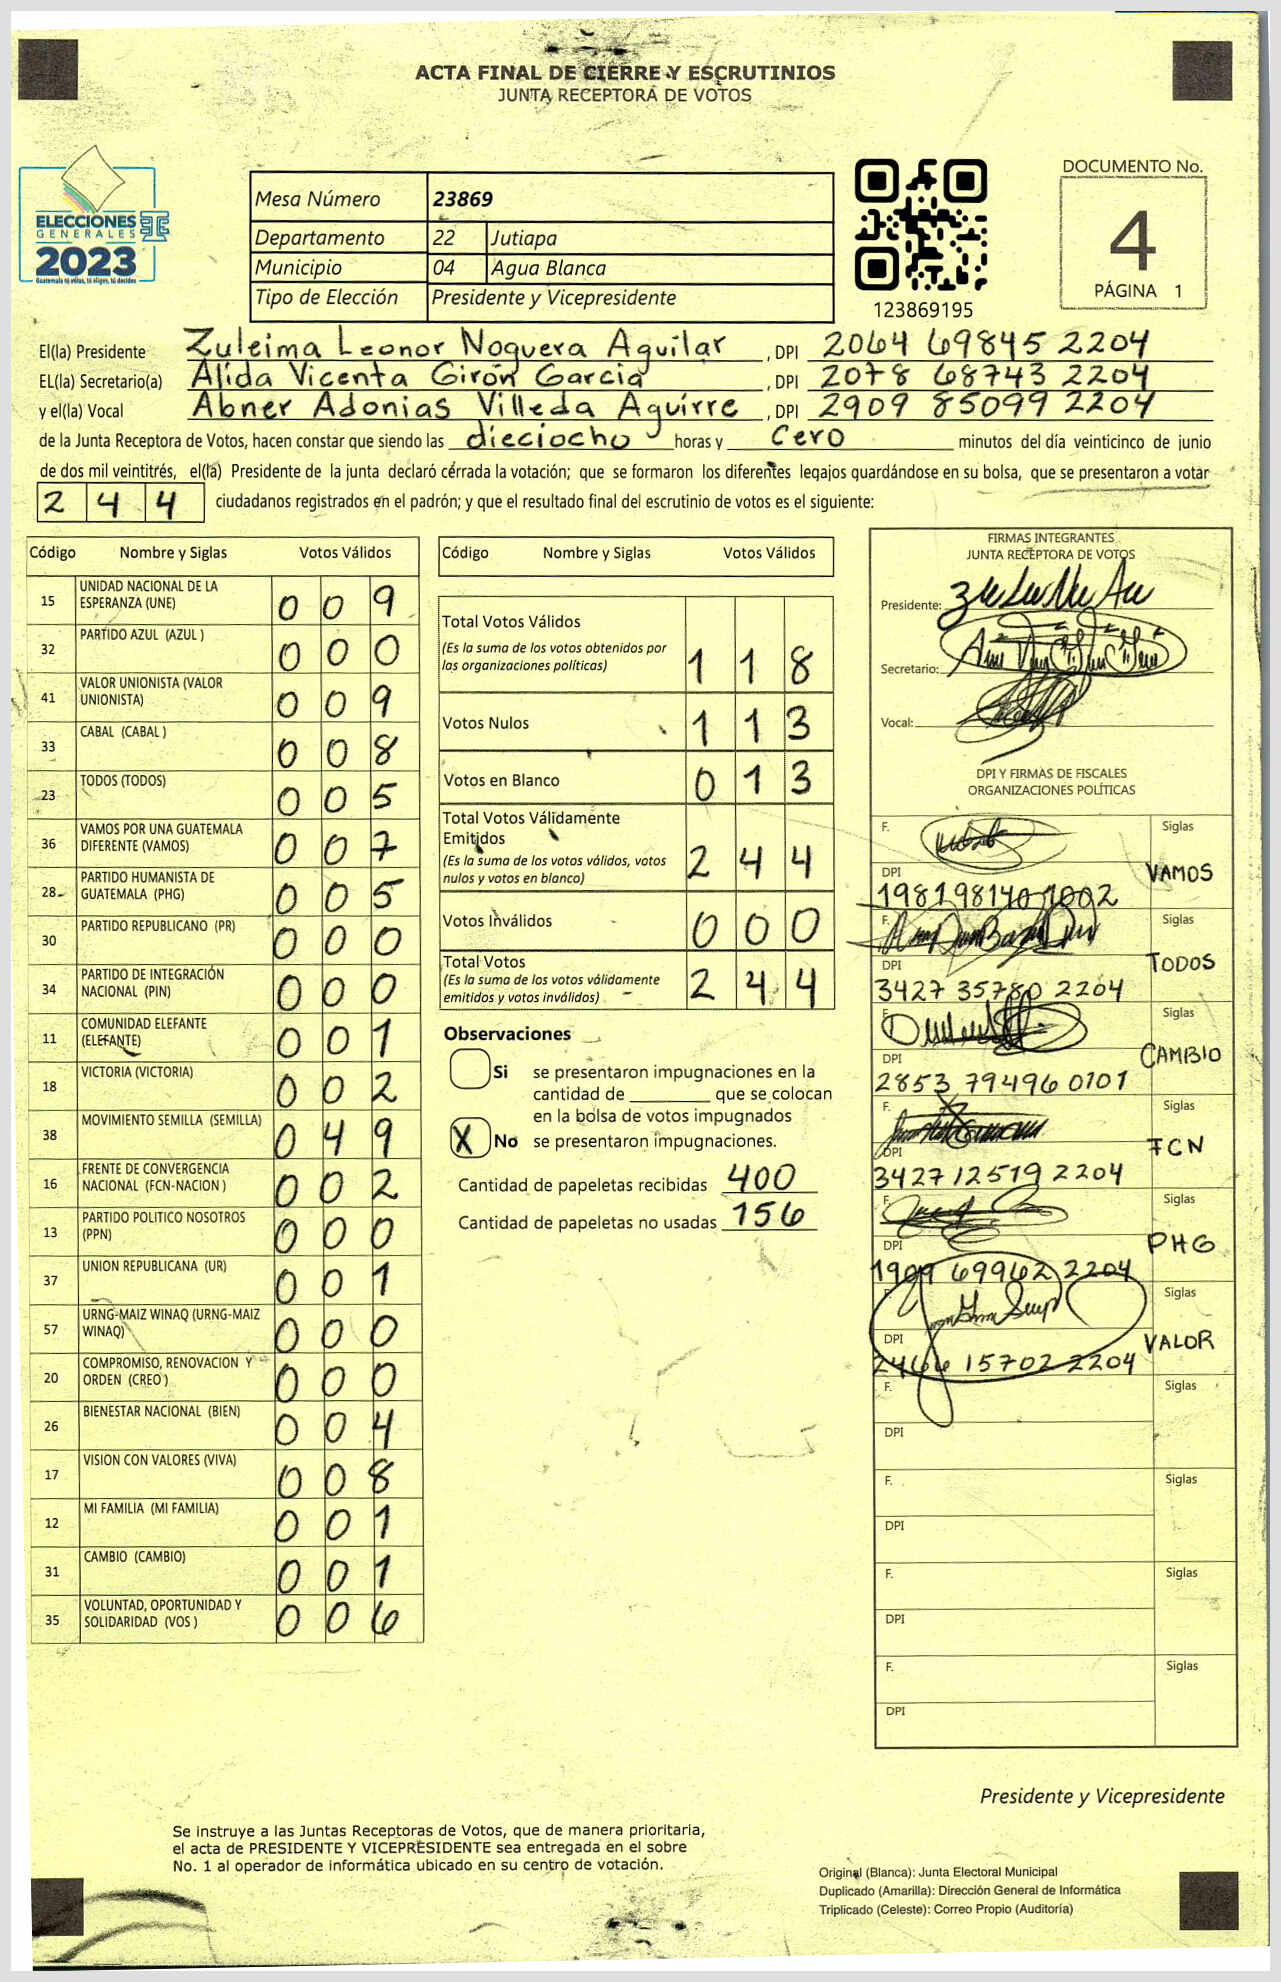 ACTA FINAL DE CIERRE Y ESCRUTINIOS
JUNTA RECEPTORA DE VOTOS
ELECCIONES
GENERALES
2023
Guatemala tú votas, tú eliges, tú decides
Mesa Número 23869
Departamento 22 Jutiapa
Municipio 04 Agua Blanca
Tipo de Elección Presidente y Vicepresidente
123869195
DOCUMENTO No.
4
PÁGINA 1
El(la) Presidente Zuleima Leonor Noguera Aguilar, DPI 2064 69845 2204
EL(la) Secretario(a) Alida Vicenta Girón Garcia, DPI 2078 68743 2204
y el(la) Vocal Abner Adonias Villeda Aguirre, DPI 2909 85099 2204
de la Junta Receptora de Votos, hacen constar que siendo las dieciocho horas y cero minutos del día veinticinco de junio
de dos mil veintitrés, el(la) Presidente de la junta declaró cerrada la votación; que se formaron los diferentes legajos guardándose en su bolsa, que se presentaron a votar
244 ciudadanos registrados en el padrón; y que el resultado final del escrutinio de votos es el siguiente:
Código Nombre y Siglas Votos Válidos
15 UNIDAD NACIONAL DE LA ESPERANZA (UNE) 009
32 PARTIDO AZUL (AZUL ) 000
41 VALOR UNIONISTA (VALOR UNIONISTA) 009
33 CABAL (CABAL ) 008
23 TODOS (TODOS) 005
36 VAMOS POR UNA GUATEMALA DIFERENTE (VAMOS) 007
28 PARTIDO HUMANISTA DE GUATEMALA (PHG) 005
30 PARTIDO REPUBLICANO (PR) 000
34 PARTIDO DE INTEGRACIÓN NACIONAL (PIN) 000
11 COMUNIDAD ELEFANTE (ELEFANTE) 001
18 VICTORIA (VICTORIA) 002
38 MOVIMIENTO SEMILLA (SEMILLA) 049
16 FRENTE DE CONVERGENCIA NACIONAL (FCN-NACION ) 002
13 PARTIDO POLITICO NOSOTROS (PPN) 000
37 UNION REPUBLICANA (UR) 001
57 URNG-MAIZ WINAQ (URNG-MAIZ WINAQ) 000
20 COMPROMISO, RENOVACION Y ORDEN (CREO ) 000
26 BIENESTAR NACIONAL (BIEN) 004
17 VISION CON VALORES (VIVA) 008
12 MI FAMILIA (MI FAMILIA) 001
31 CAMBIO (CAMBIO) 001
35 VOLUNTAD, OPORTUNIDAD Y SOLIDARIDAD (VOS ) 006
Código Nombre y Siglas Votos Válidos
Total Votos Válidos
(Es la suma de los votos obtenidos por
las organizaciones políticas) 118
Votos Nulos 113
Votos en Blanco 013
Total Votos Válidamente
Emitidos
(Es la suma de los votos válidos, votos
nulos y votos en blanco) 244
Votos Inválidos 000
Total Votos
(Es la suma de los votos válidamente
emitidos y votos inválidos) 244
Observaciones
Si se presentaron impugnaciones en la
cantidad de ________ que se colocan
en la bolsa de votos impugnados
X No se presentaron impugnaciones.
Cantidad de papeletas recibidas 400
Cantidad de papeletas no usadas 156
FIRMAS INTEGRANTES
JUNTA RECEPTORA DE VOTOS
Presidente:
Secretario:
Vocal:
DPI Y FIRMAS DE FISCALES
ORGANIZACIONES POLÍTICAS
F. Siglas
DPI VAMOS
F. Siglas
DPI TODOS
3427 35780 2204
F. Siglas
DPI CAMBIO
2853 79496 0101
F. Siglas
DPI FCN
3427 12519 2204
F. Siglas
DPI PHG
1909 69962 2204
F. Siglas
DPI VALOR
2466 15702 2204
F. Siglas
DPI
F. Siglas
DPI
F. Siglas
DPI
F. Siglas
DPI
Presidente y Vicepresidente
Se instruye a las Juntas Receptoras de Votos, que de manera prioritaria,
el acta de PRESIDENTE Y VICEPRESIDENTE sea entregada en el sobre
No. 1 al operador de informática ubicado en su centro de votación.
Original (Blanca): Junta Electoral Municipal
Duplicado (Amarilla): Dirección General de Informática
Triplicado (Celeste): Correo Propio (Auditoría)